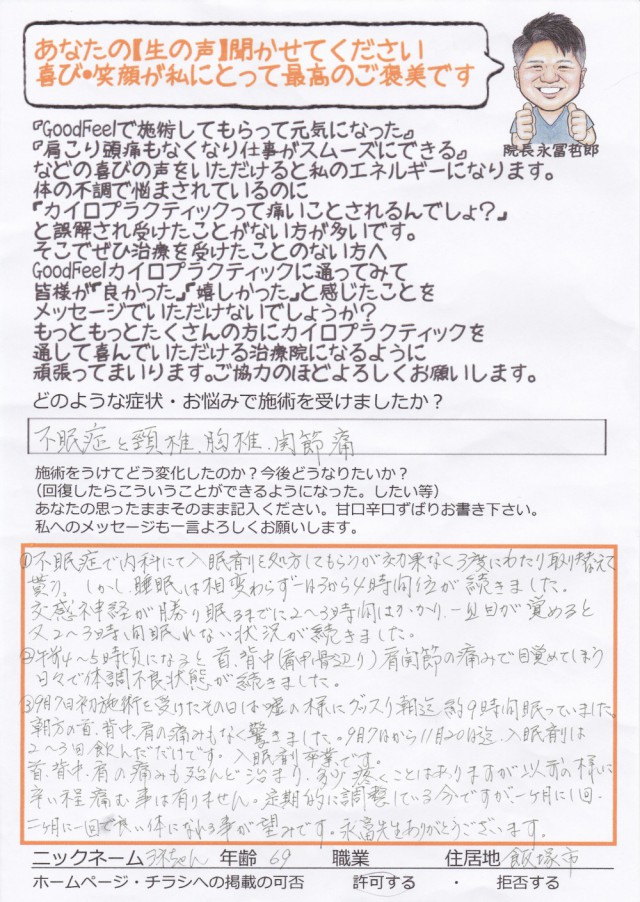 あなたの【生の声】聞かせてください
喜び・笑顔が私にとって最高のご褒美です
院長永冨哲郎
『GoodFeelで施術してもらって元気になった』
『肩こり頭痛もなくなり仕事がスムーズにできる』
などの喜びの声をいただけると私のエネルギーになります。
体の不調で悩まされているのに
『カイロプラクティックって痛いことされるんでしょ?』
と誤解され受けたことがない方が多いです。
そこでぜひ治療を受けたことのない方へ
GoodFeelカイロプラクティックに通ってみて
皆様が『良かった』『嬉しかった』と感じたことを
メッセージでいただけないでしょうか?
もっともっとたくさんの方にカイロプラクティックを
通して喜んでいただける治療院になるように
頑張ってまいります。ご協力のほどよろしくお願いします。
どのような症状・お悩みで施術を受けましたか?
不眠症と頸椎、胸椎、関節痛
施術をうけてどう変化したのか?今後どうなりたいか?
(回復したらこういうことができるようになった。したい等)
あなたの思ったままそのまま記入ください。甘口辛口ずばりお書き下さい。
私へのメッセージも一言よろしくお願いします。
①不眠症で内科にて入眠剤を処方してもらうが効果なく3度にわたり取り替えて
貰う。しかし睡眠は相変わらず一日3から4時間位が続きました。
交感神経が勝り眠るまでに2〜3時間はかかり、一旦目が覚めると
又2〜3時間眠れない状況が続きました。
②午前4〜5時頃になると首、背中(肩甲骨辺り)肩関節の痛みで目覚めてしまう
日々で体調不良状態が続きました。
③9月7日初施術を受けたその日は嘘の様にグッスリ朝迄約9時間眠っていました。
朝方の首、背中、肩の痛みもなく驚きました。9月7日から11月20日迄、入眠剤は
2〜3回飲んだだけです。入眠剤卒業です。
首、背中、肩の痛みも殆んど治まり、多少疼くことはありますが以前の様に
辛い程痛む事は有りません。定期的に調整している今ですが、一ヶ月に1回、
二ヶ月に一回で良い体になれる事が望みです。永冨先生ありがとうございます。
ニックネーム ちゃん 年齢 69 職業 住居地 飯塚市
ホームページ・チラシへの掲載の可否 許可する ・ 拒否する